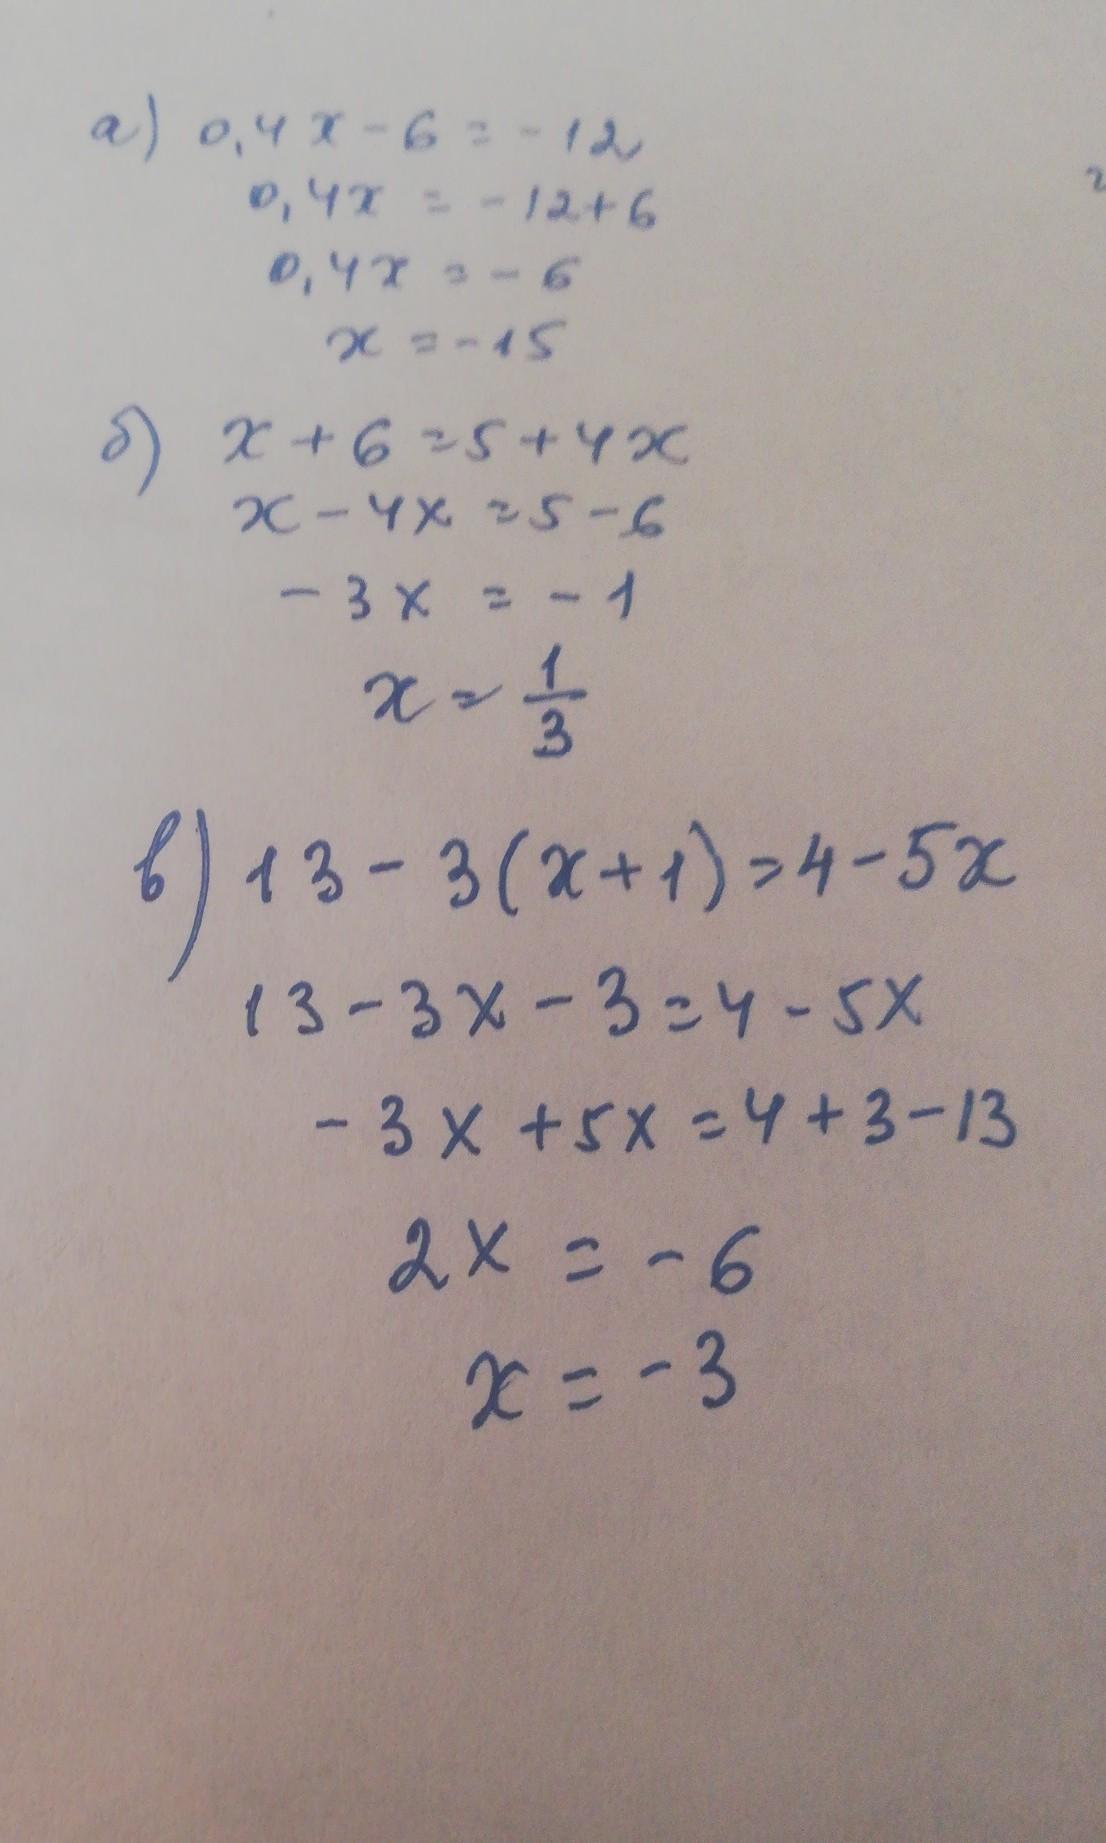 а) 0,4x - 6 = -12
0,4x = -12+6
0,4x = - 6
x = -15
б) x + 6 = 5 + 4x
x - 4x = 5 - 6
- 3x = - 1
x = 1/3
в) 13 - 3(x+1) = 4 - 5x
13 - 3x - 3 = 4 - 5x
- 3x + 5x = 4 + 3 - 13
2x = - 6
x = - 3